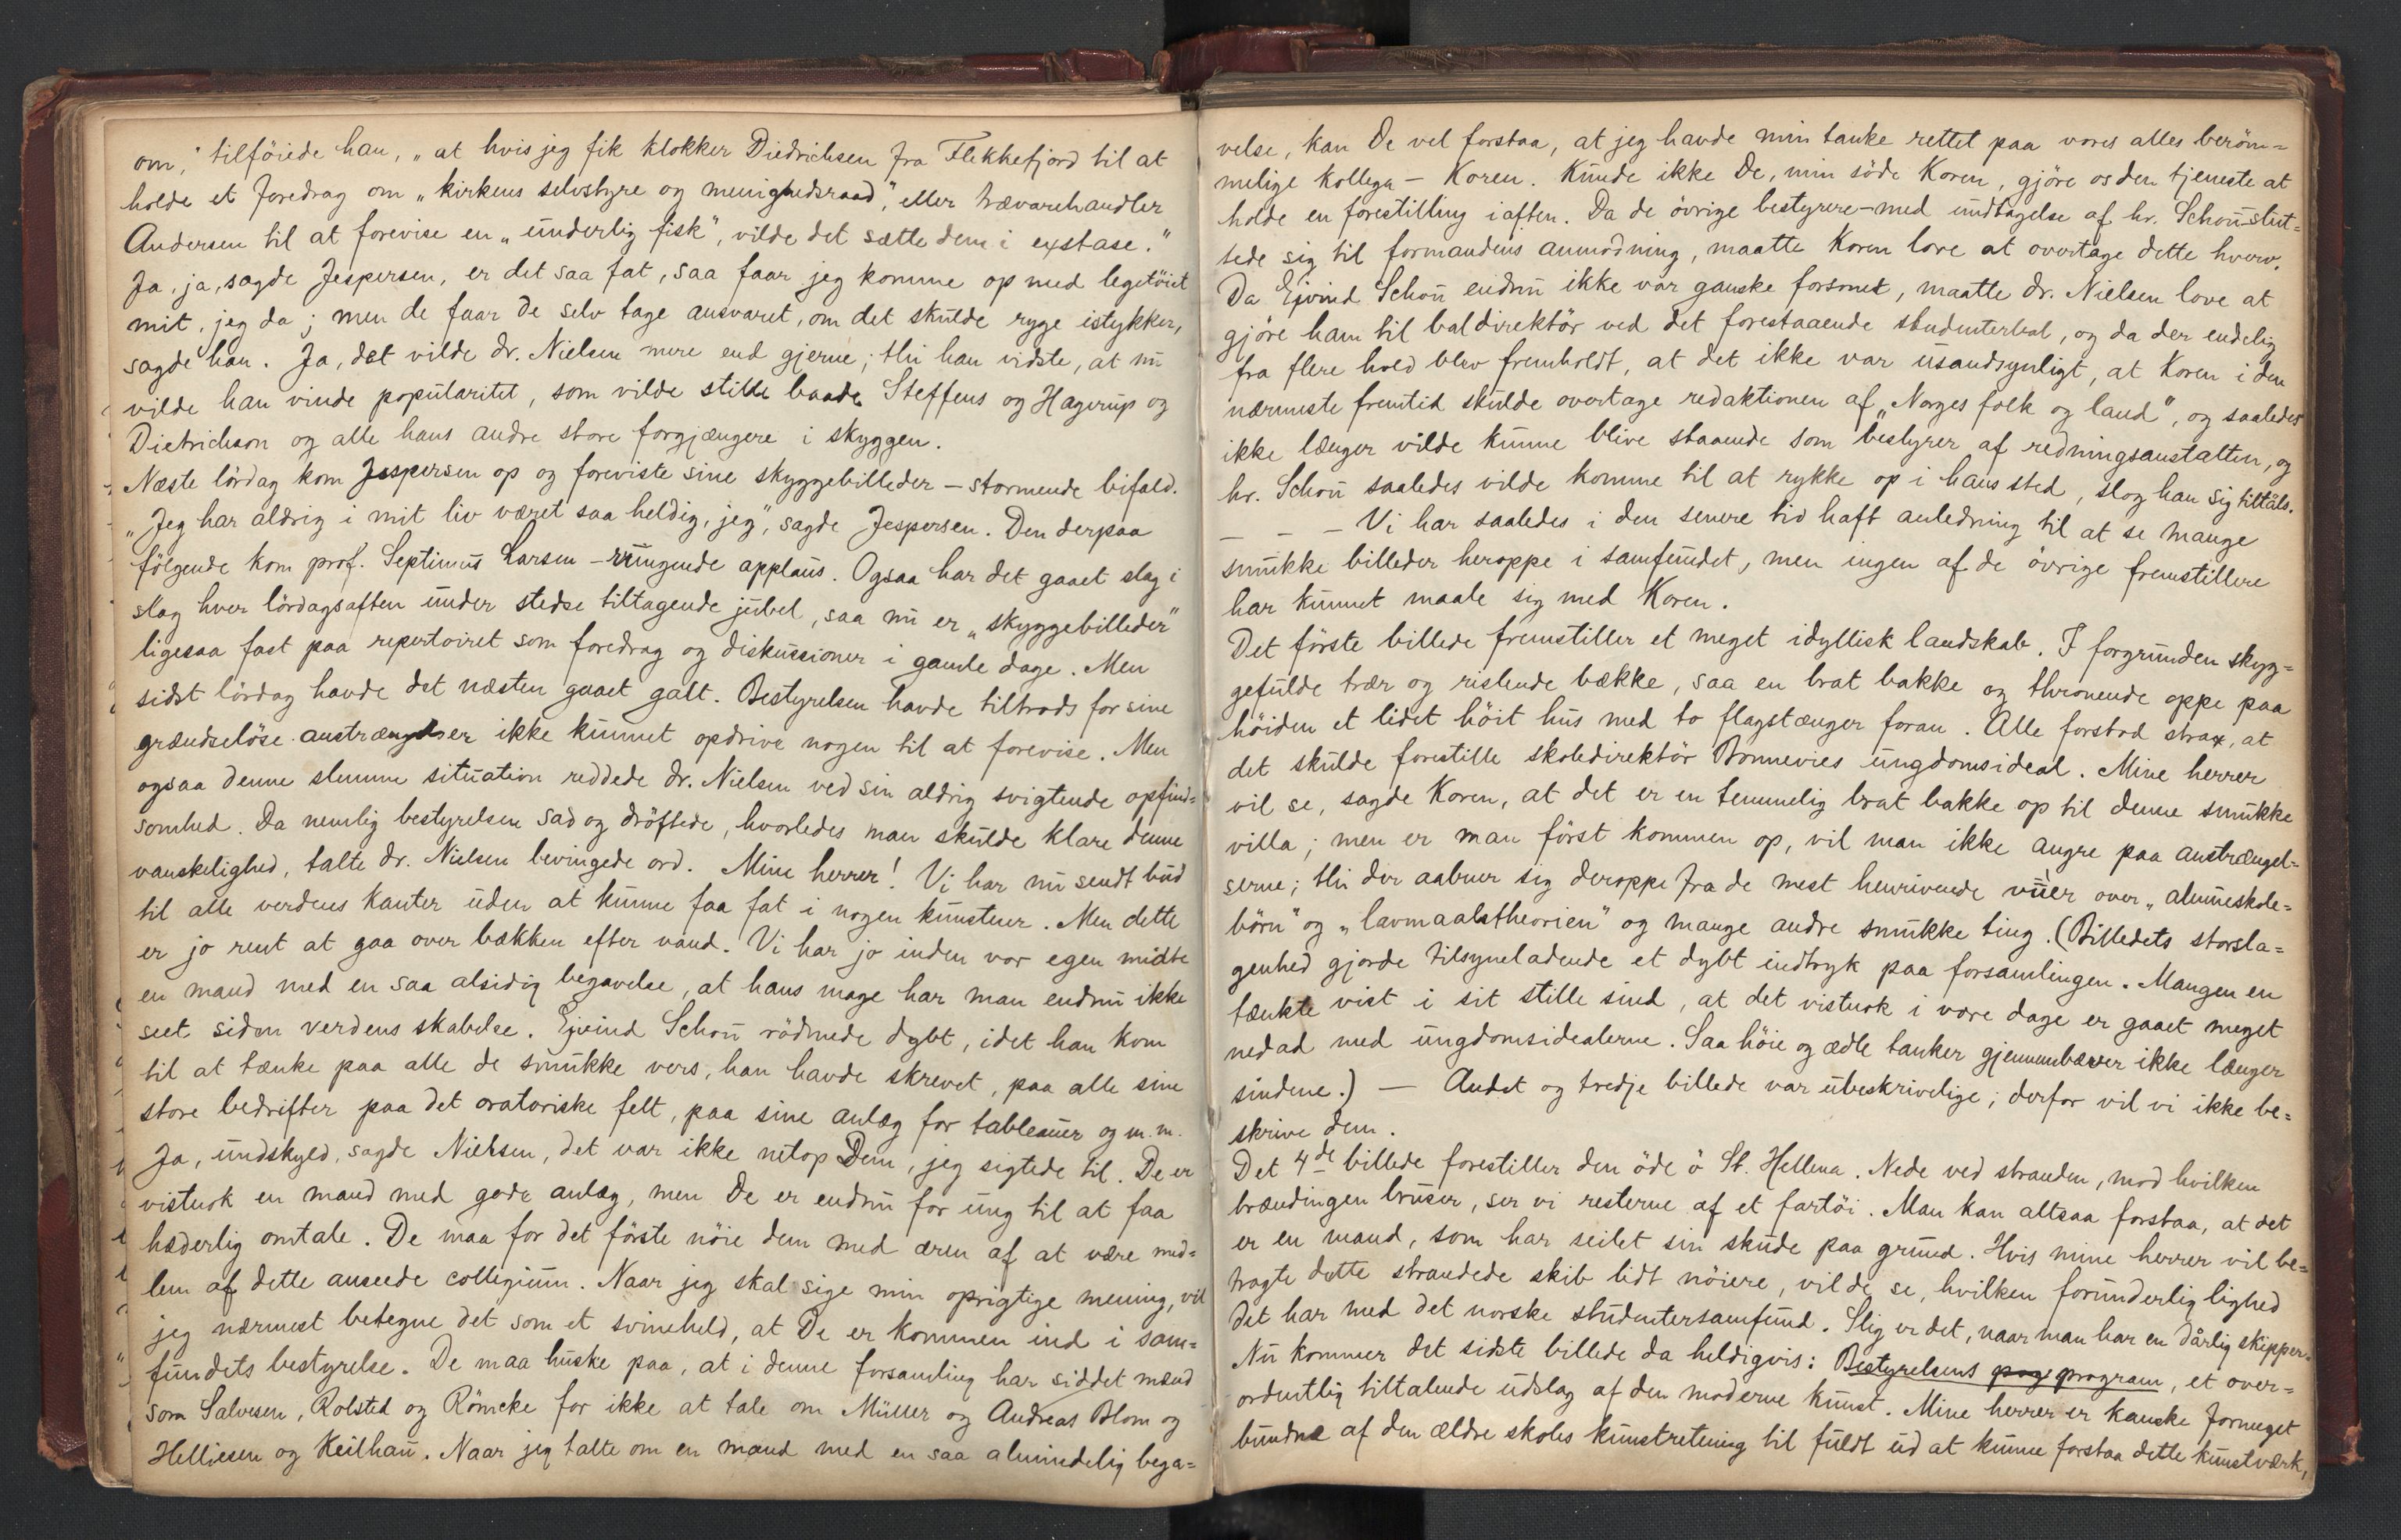 om," tilföiede han, „at hvis jeg fik klokker Diedrichsen fra Flekkefjord til at
holde et foredrag om „kirkens selvstyre og menighedsraad", eller trævarehandler
Andersen til at forevise en „underlig fisk", vilde det sætte dem i exstase."
Ja, ja, sagde Jespersen, er det saa fat, saa faar jeg komme op med legetöiet
mit, jeg da; men de faar De selv tage ansvaret, om det skulde ryge istykker,
sagde han. Ja, det vilde dr. Nielsen mere end gjerne; thi han vidste, at nu
vilde han vinde popularitet, som vilde stille baade Steffens og Hagerup og
Dietrichson og alle hans andre store forgjængere i skyggen.
Næste lördag kom Jespersen op og foreviste sine skyggebilleder – stormende bifald.
„Jeg har aldrig i mit liv været saa heldig, jeg", sagde Jespersen. Den derpaa
følgende kom prof. Septimus Larsen – rungende applaus. Ogsaa har det gaaet slag i
slag hver lördagsaften under stedse tiltagende jubel, saa nu er „skyggebilleder"
ligesaa fast paa repertoiret som foredrag og diskussioner i gamle dage. Men
sidst lördag havde det næsten gaaet galt. Bestyrelsen havde tiltrods for sine
grændselöse anstrængelser ikke kunnet opdrive nogen til at forevise. Men
ogsaa denne slemme situation reddede dr. Nielsen ved sin aldrig svigtende opfind=
somhed. Da nemlig bestyrelsen sad og dröftede, hvorledes man skulde klare denne
vanskelighed, talte dr. Nielsen bevingede ord. Mine herrer! Vi har nu sendt bud
til alle verdens kanter uden at kunne faa fat i nogen kunstner. Men dette
er jo rent at gaa over bækken efter vand. Vi har jo inden vor egen midte
en mand med en saa alsidig begavelse, at hans mage har man endnu ikke
seet siden verdens skabelse. Ejvind Schou rödmede dybt, idet han kom
til at tænke paa alle de smukke vers, han havde skrevet, paa alle sine
store bedrifter paa det oratoriske felt, paa sine anlæg for tableauer og m. m.
Ja, undskyld, sagde Nielsen, det var ikke netop Dem, jeg sigtede til. De er
vistnok en mand med gode anlæg, men De er endnu for ung til at faa
hæderlig omtale. De maa for det förste nöie dem med æren af at være med=
lem af dette anseede collegium. Naar jeg skal sige min oprigtige mening, vil
jeg nærmest betegne det som et svineheld, at De er kommen ind i sam=
fundets bestyrelse. De maa huske paa, at i denne forsamling har siddet mænd
som Salvesen, Rolsted og Römcke for ikke at tale om Müller og Andreas Blom og
Helliesen og Keilhau. Naar jeg talte om en mand med en saa almindelig bega=
velse, kan De vel forstaa, at jeg havde min tanke rettet paa vores alles beröm=
melige kollega – Koren. Kunde ikke De, min söde Koren, gjöre os den tjeneste at
holde en forestilling iaften. Da de övrige bestyrere – med undtagelse af hr. Schou – slut=
tede sig til formandens anmodning, maatte Koren love at overtage dette hverv.
Da Ejvind Schou endnu ikke var ganske forsonet, maatte dr. Nielsen love at
gjöre ham til baldirektör ved det forestaaende studenterbal, og da der endelig
fra flere hold blev fremholdt, at det ikke var usandsynligt, at Koren i den
nærmeste fremtid skulde overtage redaktionen af „Norges folk og land", og saaledes
ikke længer vilde kunne blive staaende som bestyrer af redningsanstalten, og
hr. Schou saaledes vilde komme til at rykke op i hans sted, slog han sig tiltåls.
– – – Vi har saaledes i den senere tid haft anledning til at se mange
smukke billeder heroppe i samfundet, men ingen af de övrige fremstillere
har kunnet maale sig med Koren.
Det förste billede fremstiller et meget idyllisk landskab. I forgrunden skyg=
gefulde trær og rislende bække, saa en brat bakke og thronende oppe paa
höiden et lidet höit hus med to flagstænger foran. Alle forstod strax, at
det skulde forestille skoledirektör Bonnevies ungdomsideal. Mine herrer
vil se, sagde Koren, at det er en temmelig brat bakke op til denne smukke
villa; men er man först kommen op, vil man ikke angre paa anstrængel=
serne; thi der aabner sig deroppe fra de mest henrivende vüer over „almueskole=
börn" og „lavmaalstheorien" og mange andre smukke ting. (Billedets storsla=
genhed gjorde tilsyneladende et dybt indtryk paa forsamlingen. Mangen en
tænkte vist i sit stille sind, at det vistnok i vore dage er gaaet meget
nedad med ungdomsidealerne. Saa höie og ædle tanker gjennembæver ikke længer
sindene.) — Andet og tredje billede var ubeskrivelige; derfor vil vi ikke be=
skrive dem.
Det 4de billede forestiller den öde ö St. Hellena. Nede ved stranden, mod hvilken
brændingen bruser, ser vi resterne af et fartöi. Man kan altsaa forstaa, at det
er en mand, som har seilet sin skude paa grund. Hvis mine herrer vil be=
tragte dette strandede skib lidt nöiere, vil de se, hvilken forunderlig lighed
det har med det norske studentersamfund. Slig er det, naar man har en dårlig skipper.
Nu kommer det sidste billede da heldigvis: Bestyrelsens prog program, et over=
ordentlig tiltalende udslag af den moderne kunst. Mine herrer er kanske formeget
bundne af den ældre skoles kunstretning til fuldt ud at kunne forstaa dette kunstværk,